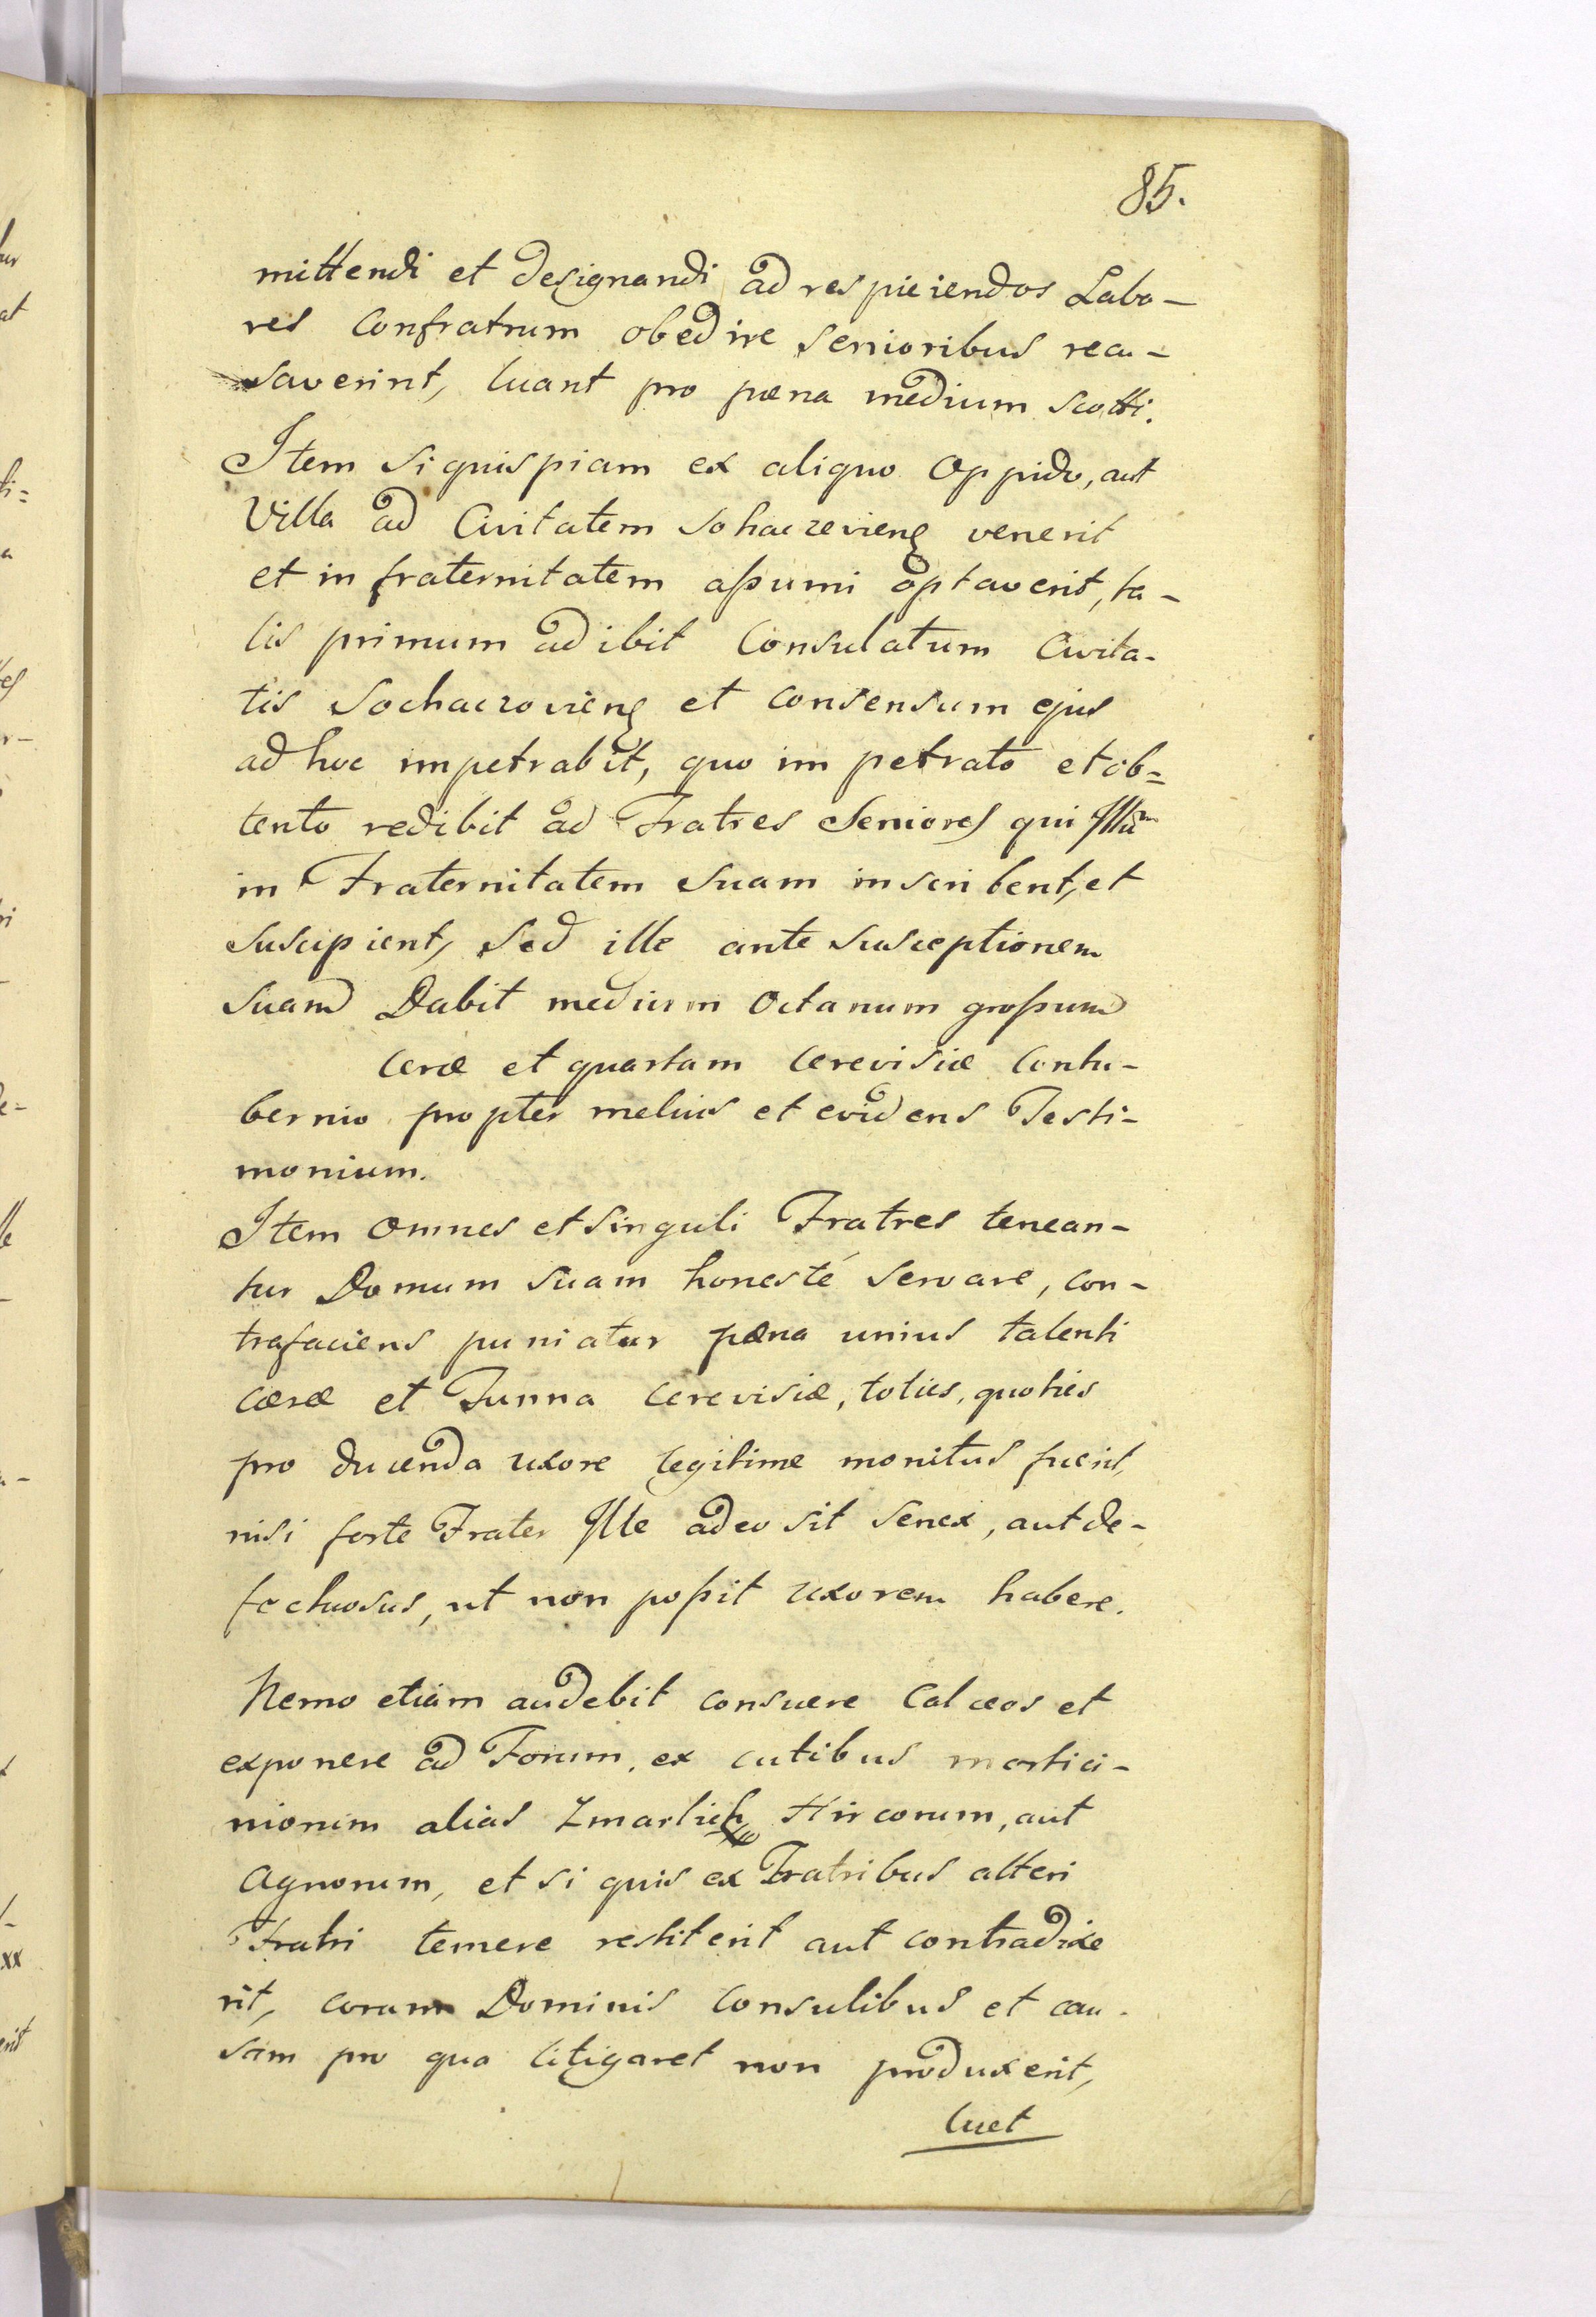 85.
mittendi et designandi ad respiciendos Labo-
res Confratrum obedire senioribus recu-
saverint, luant pro pæna medium scotti.
Item si quispiam ex aliquo Oppido, aut
Villa ad Civitatem Sohaczevieng venerit
et in fraternitatem assumi optaverit, ta-
lis primum adibit Consulatum Civita-
tis Sochaczovieng et consensum ejus
ad hoc impetrabit, quo impetrato et ob=
tento redibit ad Fratres Seniores qui Illum
in Fraternitatem suam inscribent, et
suscipient, sed ille ante susceptionem
suam Dabit medium octanum grossum
ceræ et quartam cerevisiæ Contu-
bernio propter melius et evidens Testi-
monium.
Item omnes et singuli Fratres tenean-
tur Domum suam honesté servare, con-
trafaciens puniatur pæna unius talenti
cæræ et Tunna cerevisiæ, toties, quoties
pro ducenda uxore legitime monitus fuerit,
nisi forte Frater Ille adeo sit senex, aut de-
fectuosus, ut non possit uxorem habere.
Nemo etiam audebit consuere Calceos et
exponere ad Forum, ex cutibus mortici-
niorum alias Zmarlich Hircorum, aut
Agnorum, et si quis ex Fratribus alteri
Fratri temere restiterit aut contradixe
rit, coram Dominis Consulibus et cau-
sam pro qua litigaret non produxerit,
luet